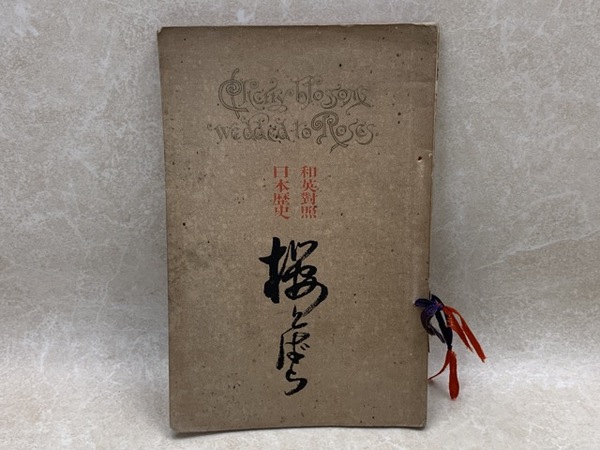 Cherry-blossoms
wedded to Roses.
和英對照
日本歴史
櫻とばら